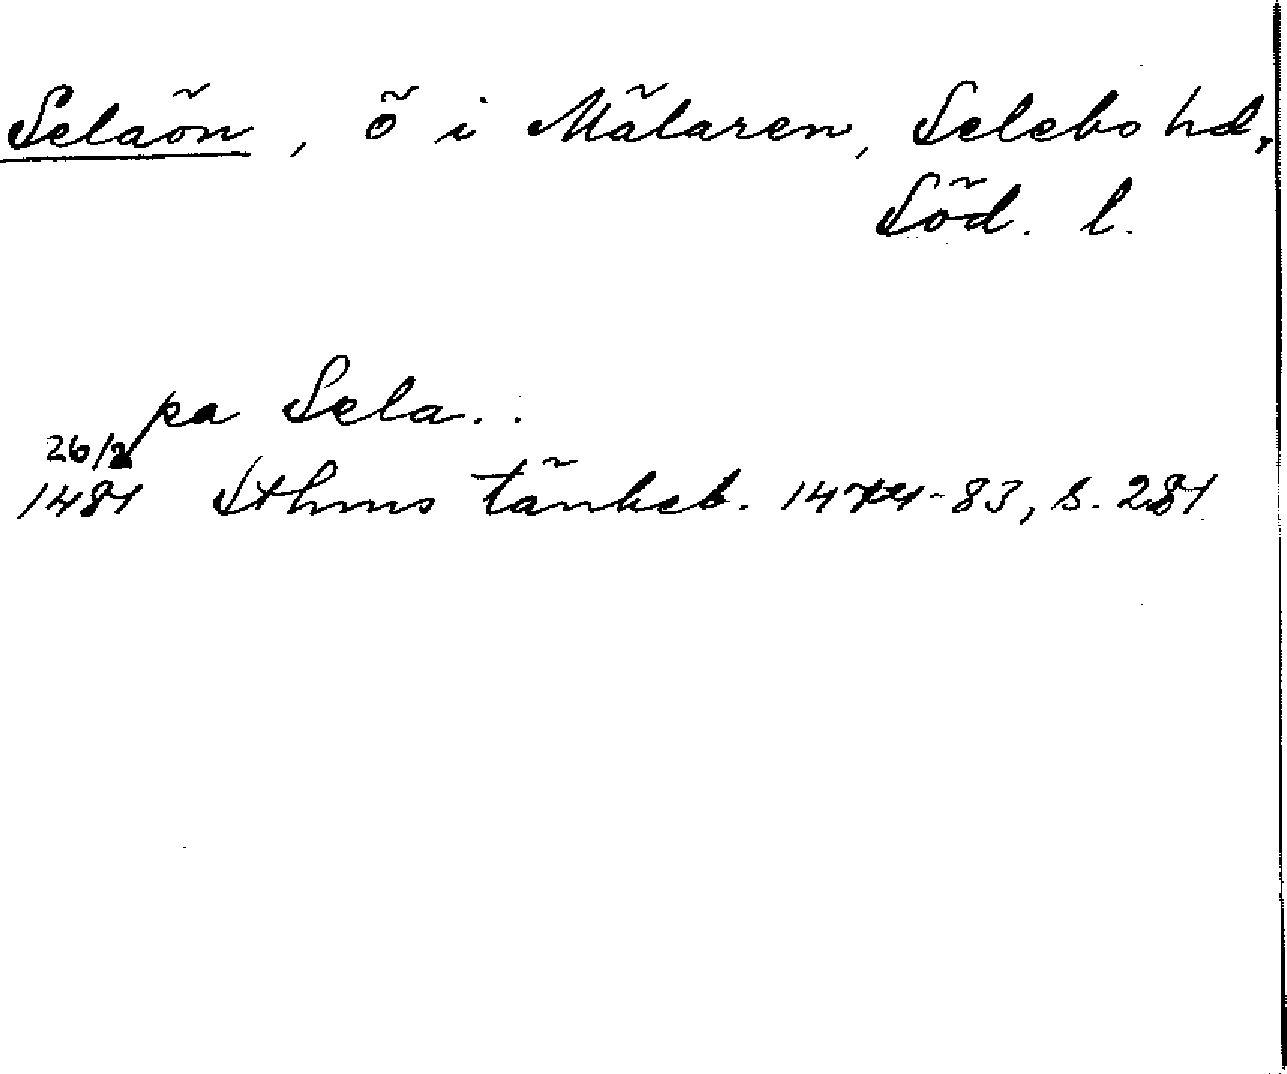 Selaön, ö i Mälaren, Selebo hd,
Söd. l.
pa Sela..
26/2
1481 Sthms tänkeb. 1474-83, s. 281